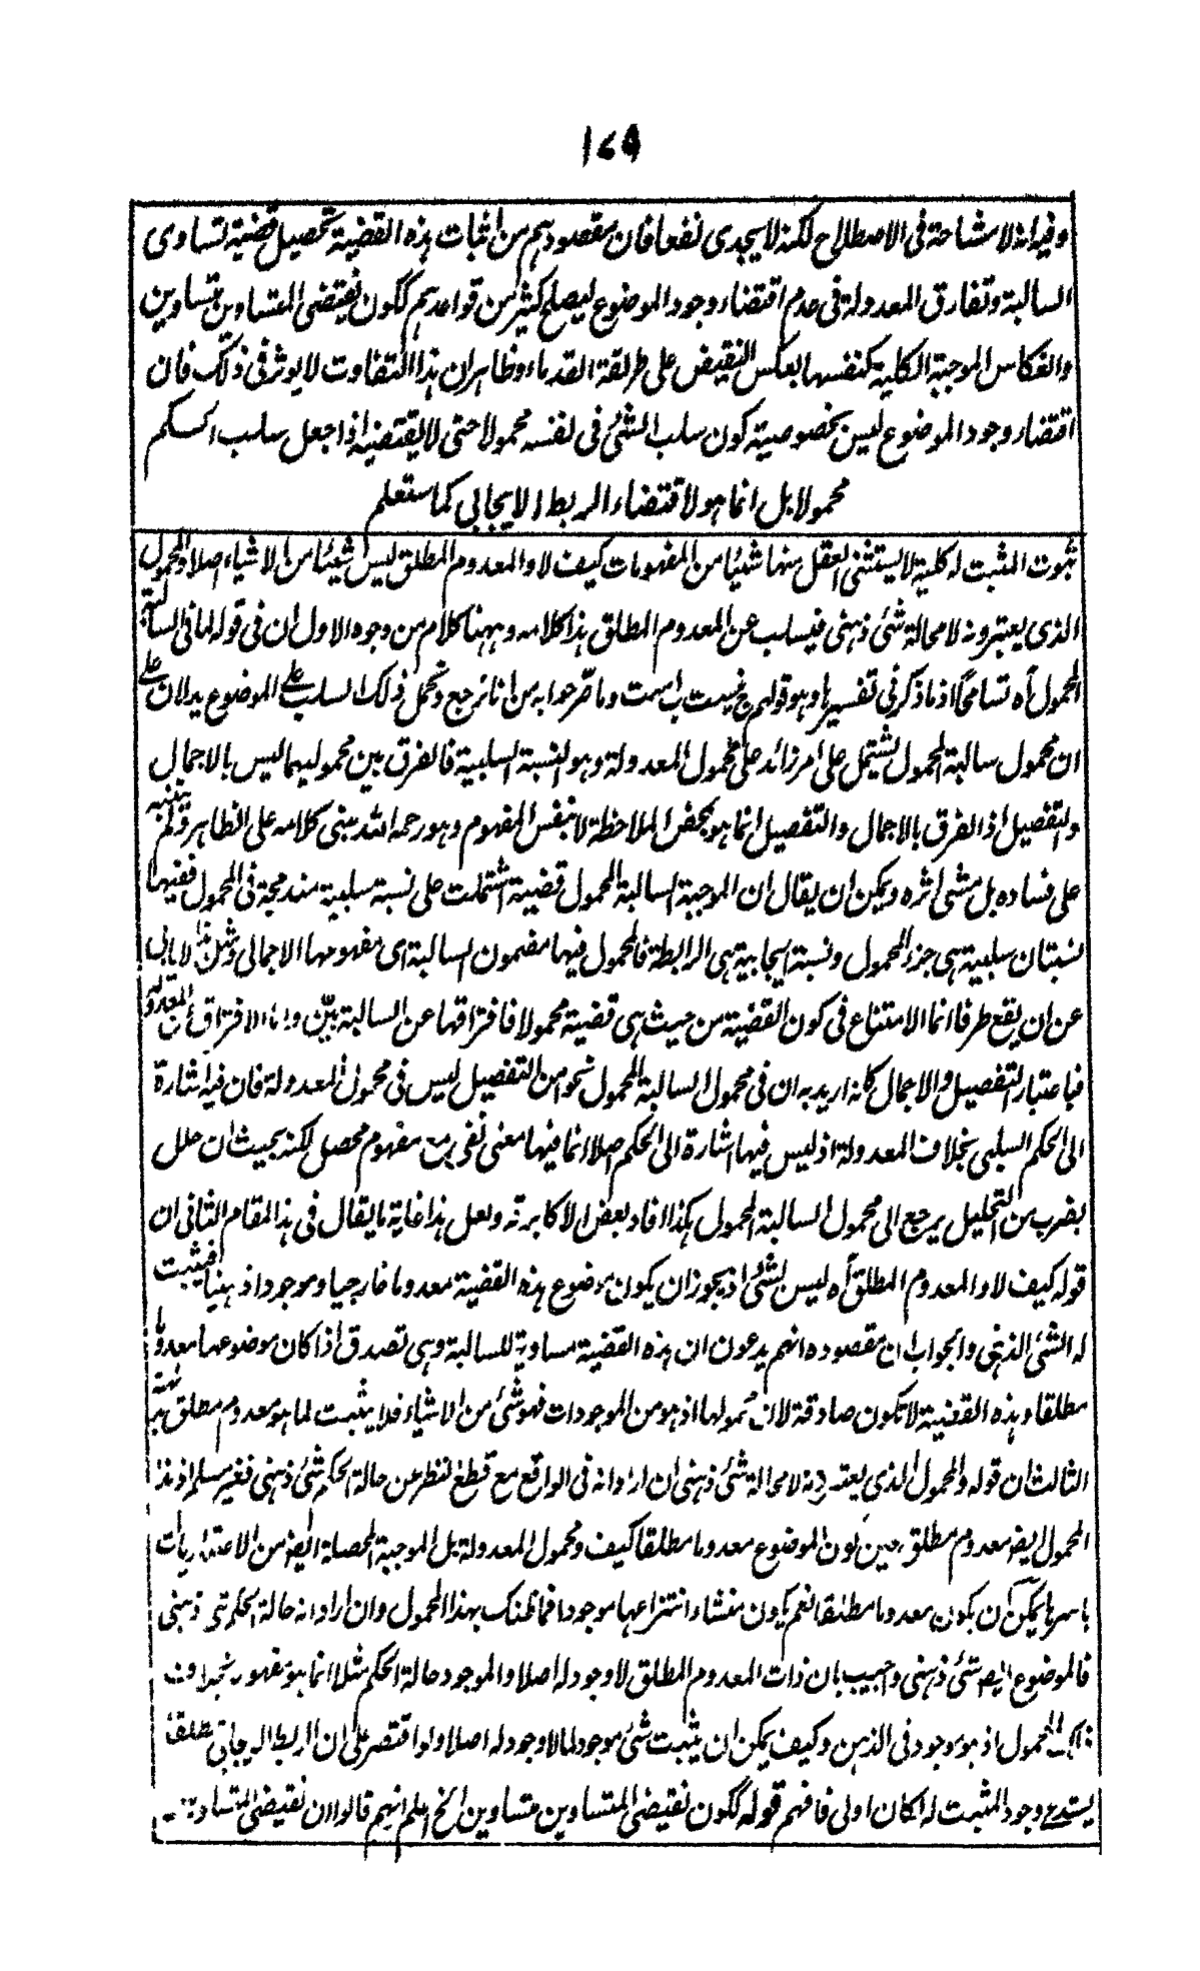 ١٧٩
وفيه انه لا مشاحة فى الاصطلاح لكنه لا يجدى نفعا فان مقصودهم من اثبات هذه القضية تحصيل قضية تساوى
السالبة وتفارق المعدولة فى عدم اقتضاء وجود الموضوع ليصلح كثير من قواعدهم ككون نقيضى المتساويين متساويين
وانعكاس الموجبة الكلية كنفسها بعكس النقيض على طريقة القدماء وظاهر ان هذا التفاوت لا يوثر فى ذلك فان
اقتضاء وجود الموضوع ليس بخصوصية كون سلب الشئ فى نفسه محمولا حتى لا يقتضيه اذا جعل سلب الحكم
محمولا بل انما هو لاقتضاء الربط الايجابى كما ستعلم
ثبوت المثبت له كلية لا يستثنى العقل منها شيئا من المفهومات كيف لا والمعدوم المطلق ليس شيئا من الاشياء اصلا والمحمول
الذى يعتبرونه لا محالة شئ ذهنى فيسلب عن المعدوم المطلق هذا كلامه وههنا كلام من وجوه الاول ان فى قوله اما فى السالبة
المحمول آه تسامحا اذ ما ذكر فى تفسيرها وهو قولهم ج نيست ب است وما صرحوا به من انا نرجع ونحمل ذلك السلب على الموضوع يدلان على
ان محمول سالبة المحمول يشتمل على امر زائد على محمول المعدولة وهو النسبة السلبية فالفرق بين محموليهما ليس بالاجمال
والتفصيل اذ الفرق بالاجمال والتفصيل انما هو بمحض الملاحظة لا بنفس المفهوم وهو رحمه الله بنى كلامه على الظاهر ولم يتنبه
على فساده بل مشى اثره ويمكن ان يقال ان الموجبة السالبة المحمول قضية اشتملت على نسبة سلبية مندمجة فى المحمول ففيها
نسبتان سلبية هى جزء المحمول ونسبة ايجابية هى الرابطة فالمحمول فيها مضمون السالبة اى مفهومها الاجمالى ومثل هذا لا يابى
عن ان يقع طرفا انما الامتناع فى كون القضية من حيث هى قضية محمولا فافتراقها عن السالبة بيّن واما الافتراق عن المعدولة
فباعتبار التفصيل والاجمال كانه اريد به ان فى محمول السالبة المحمول نحوا من التفصيل ليس فى محمول المعدولة فان فيه اشارة
الى الحكم السلبى بخلاف المعدولة اذ ليس فيها اشارة الى الحكم اصلا انما فيها معنى نفى مع مفهوم محصل لكنه بحيث ان حلل
بضرب من التحليل يرجع الى محمول السالبة المحمول هكذا افاد بعض الاكابر ته ولعل هذا غاية ما يقال فى هذا المقام الثانى ان
قوله كيف لا والمعدوم المطلق آه ليس بشئ اذ يجوز ان يكون موضوع هذه القضية معدوما خارجيا وموجودا ذهنيا فيثبت
له الشئ الذهنى والجواب ان مقصوده انهم يدعون ان هذه القضية مساوية للسالبة وهى تصدق اذا كان موضوعها معدوما
مطلقا وهذه القضية لا تكون صادقة لان محمولها اذ هو من الموجودات فهو شئ من الاشياء فلا يثبت لما هو معدوم مطلق
الثالث ان قوله والمحمول الذى يعتبرونه لا محالة شئ ذهنى ان اراد انه فى الواقع مع قطع النظر عن حالة الحكم شئ ذهنى فغير مسلم اذ هذا
المحمول ايضا معدوم مطلق حين كون الموضوع معدوما مطلقا كيف ومحمول المعدولة بل الموجبة المحصلة ايضا من الاعتباريات
باسرها يمكن ان يكون معدوما مطلقا نعم يكون منشاء انتزاعها موجودا فما ظنك بهذا المحمول وان اراد انه حالة الحكم شئ ذهنى
فالموضوع ايضا شئ ذهنى واجيب بان ذات المعدوم المطلق لا وجود له اصلا والموجود حالة الحكم مثلا انما هو مفهومه بخلاف
ذلك المحمول اذ هو موجود فى الذهن وكيف يمكن ان يثبت شئ موجود لما لا وجود له اصلا ولو اقتصر على ان الربط الايجابى مطلقا
يستدعى وجود المثبت له لكان اولى فافهم قوله ككون نقيضى المتساويين متساويين الخ اعلم انهم قالوا ان نقيضى